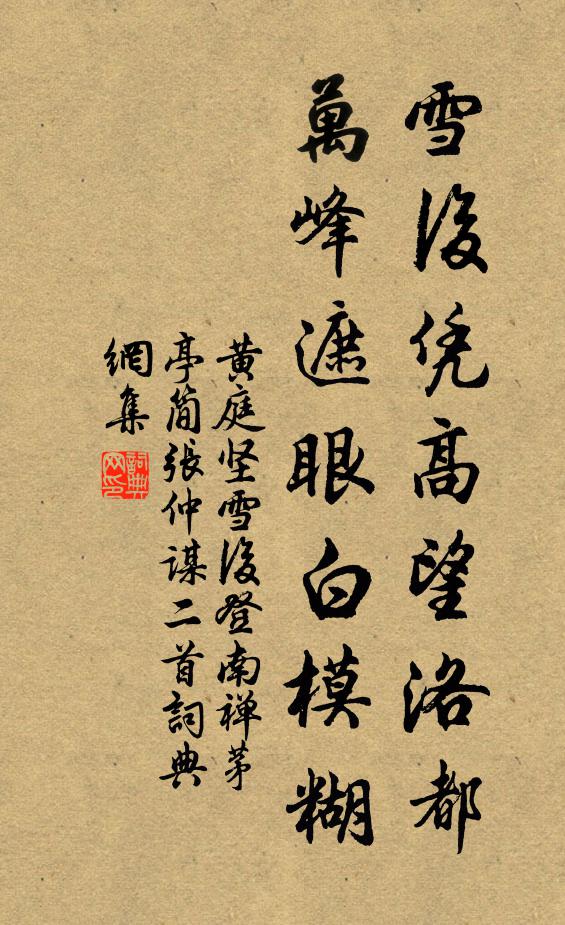 雪後凭高望洛都
萬峰遮眼白模糊
黄庭坚雪後登南禅茅
亭简張仲謀二首詞典
網集
詞典
网印